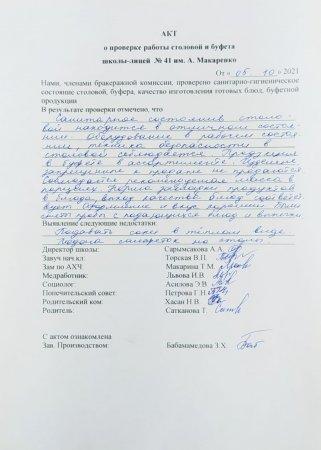 АКТ
о проверке работы столовой и буфета
школы-лицей № 41 им. А. Макаренко
От « 05. 10 » 2021
Нами, членами бракеражной комиссии, проверено санитарно-гигиеническое
состояние столовой, буфера, качество изготовления готовых блюд, буфетной
продукции
В результате проверки отмечено, что
Санитарное состояние столо-
вой находится в отличном состоя-
нии. Оборудование в рабочем состоя-
нии, техника безопасности в
столовой соблюдается. Продукция
в буфете в ассортименте. Буфетные
запрещение к продаже не продаются.
Соблюдается рекомендуемая масса в
порциях. Норма закладки продуктов
в блюда, выход, качество блюд соответст-
вует. Оформление и вкус хороший. Были
сняты пробы с подающихся блюд и выпечки
Выявление следующие недостатки:
Подавать соки в тёплом виде.
Подача салфеток на столы.
Директор школы: Сарымсакова А.А.
Завуч нач.кл. Торская В.П.
Зам по АХЧ Макарина Т.М.
Медработник: Львова И.В.
Социолог: Асилова Э.В.
Попечительский совет: Петрова Г.Н.
Родительский ком: Хасан Н.В.
Родитель: Сатканова Т.
С актом ознакомлена
Зав. Производством: Бабамамедова З.Х.